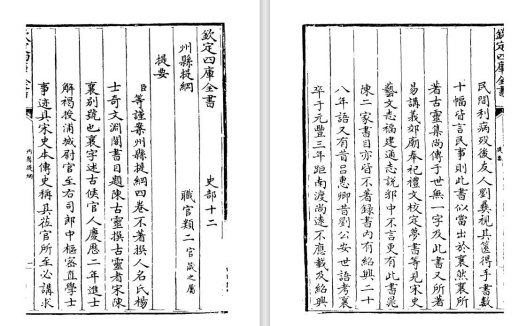 欽定四庫全書
史部十二
州縣提綱
職官類二官箴之屬
提要
臣等謹案州縣提綱四卷不著撰人名氏楊
士奇文淵閣書目題陳古靈撰古靈者宋陳
襄别號也襄字述古侯官人慶厯二年進士
解褐授浦城尉官至右司郎中樞密直學士
事迹具宋史本傳史稱其莅官所至必講求
州縣提綱
欽定四庫全書
民間利病殁後友人劉彝視其篋得手書數
十幅皆言民事則此書似當出於襄然襄所
著古靈集尚傳于世無一字及此書又所著
易講義郊廟奉祀禮文校定夢書等見宋史
藝文志福建通志説郛中不言更有此書晁
陳二家書目亦皆不著錄書内有紹興二十
八年語又有昔吕惠卿昔劉公安世語考襄
卒于元豐三年距南渡尚遠不應載及紹興